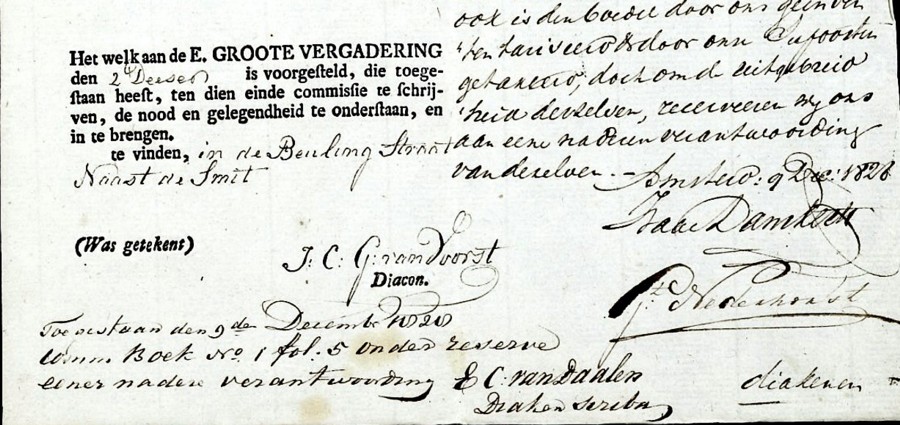 Het welk aan de E. GROOTE VERGADERING
den 2de Deeser is voorgesteld, die toege-
staan heeft, ten dien einde commissie te schrij-
ven, de nood en gelegendheid te onderstaan, en
in te brengen.
te vinden, in de Beuling Straat
Naast de Smit
(Was getekent)
J: C: G: van Voorst
Diacon.
Toegestaan den 9de December 1828
Comm Boek No. 1 fol: 5 onder reserve
eener nadere verantwoording E C: van Daalen
Diaken scriba
ook is den boedel door ons geinven
tariseerd & door onse
getaxeerd, doch om de uitgebreid
heid deszelven, reserveeren wy ons
aan eene nadere verantwoording
van deselven. - Amsterd: 9 Dec: 1828
Isaac
Nederhorst
diakenen